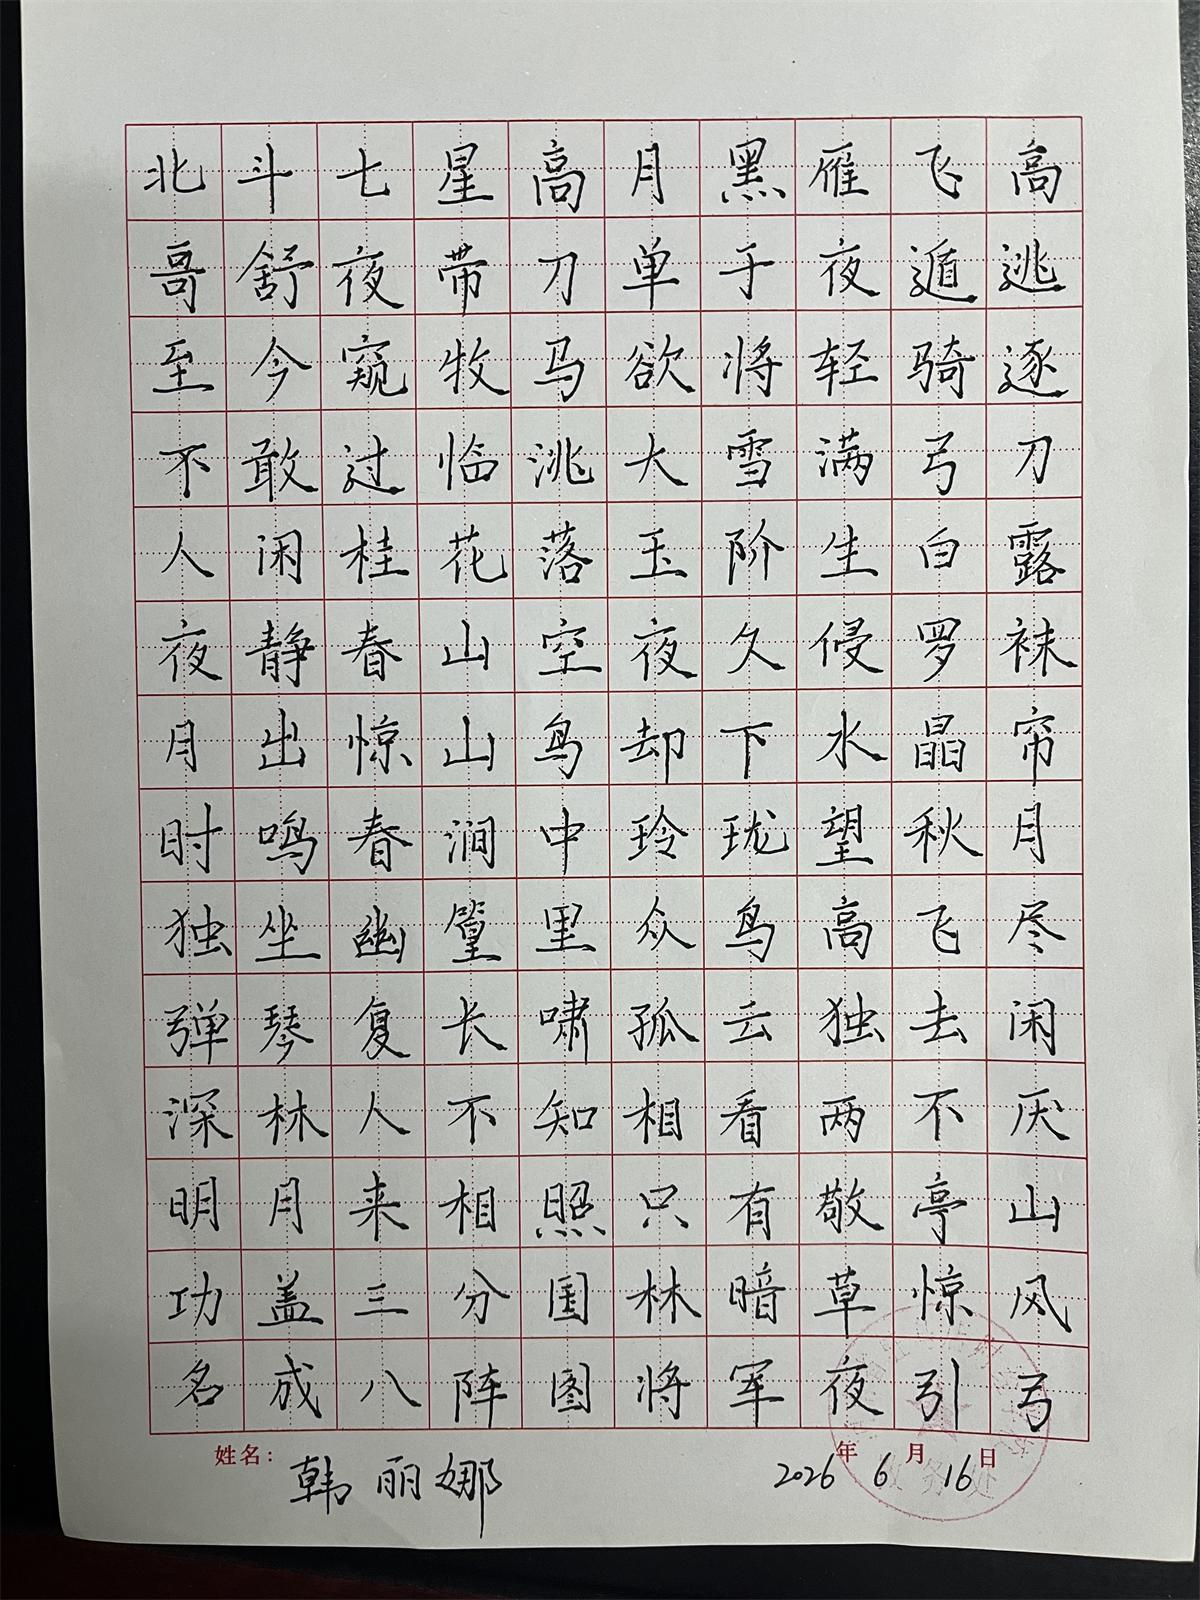 北斗七星高月黑雁飞高
哥舒夜带刀单于夜遁逃
至今窥牧马欲将轻骑逐
不敢过临洮大雪满弓刀
人闲桂花落玉阶生白露
夜静春山空夜久侵罗袜
月出惊山鸟却下水晶帘
时鸣春涧中玲珑望秋月
独坐幽篁里众鸟高飞尽
弹琴复长啸孤云独去闲
深林人不知相看两不厌
明月来相照只有敬亭山
功盖三分国林暗草惊风
名成八阵图将军夜引弓
姓名：韩丽娜 2026年6月16日
教务处